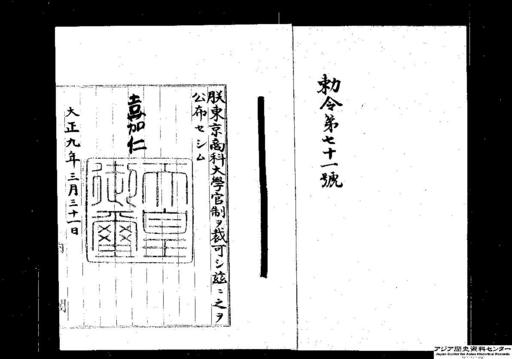 勅令第七十一號
朕東京高科大學官制ヲ裁可シ茲ニ之ヲ
公布セシム
嘉仁
天皇
御璽
大正九年三月三十一日
内閣
アジア歴史資料センター
Japan Center for Asian Historical Records